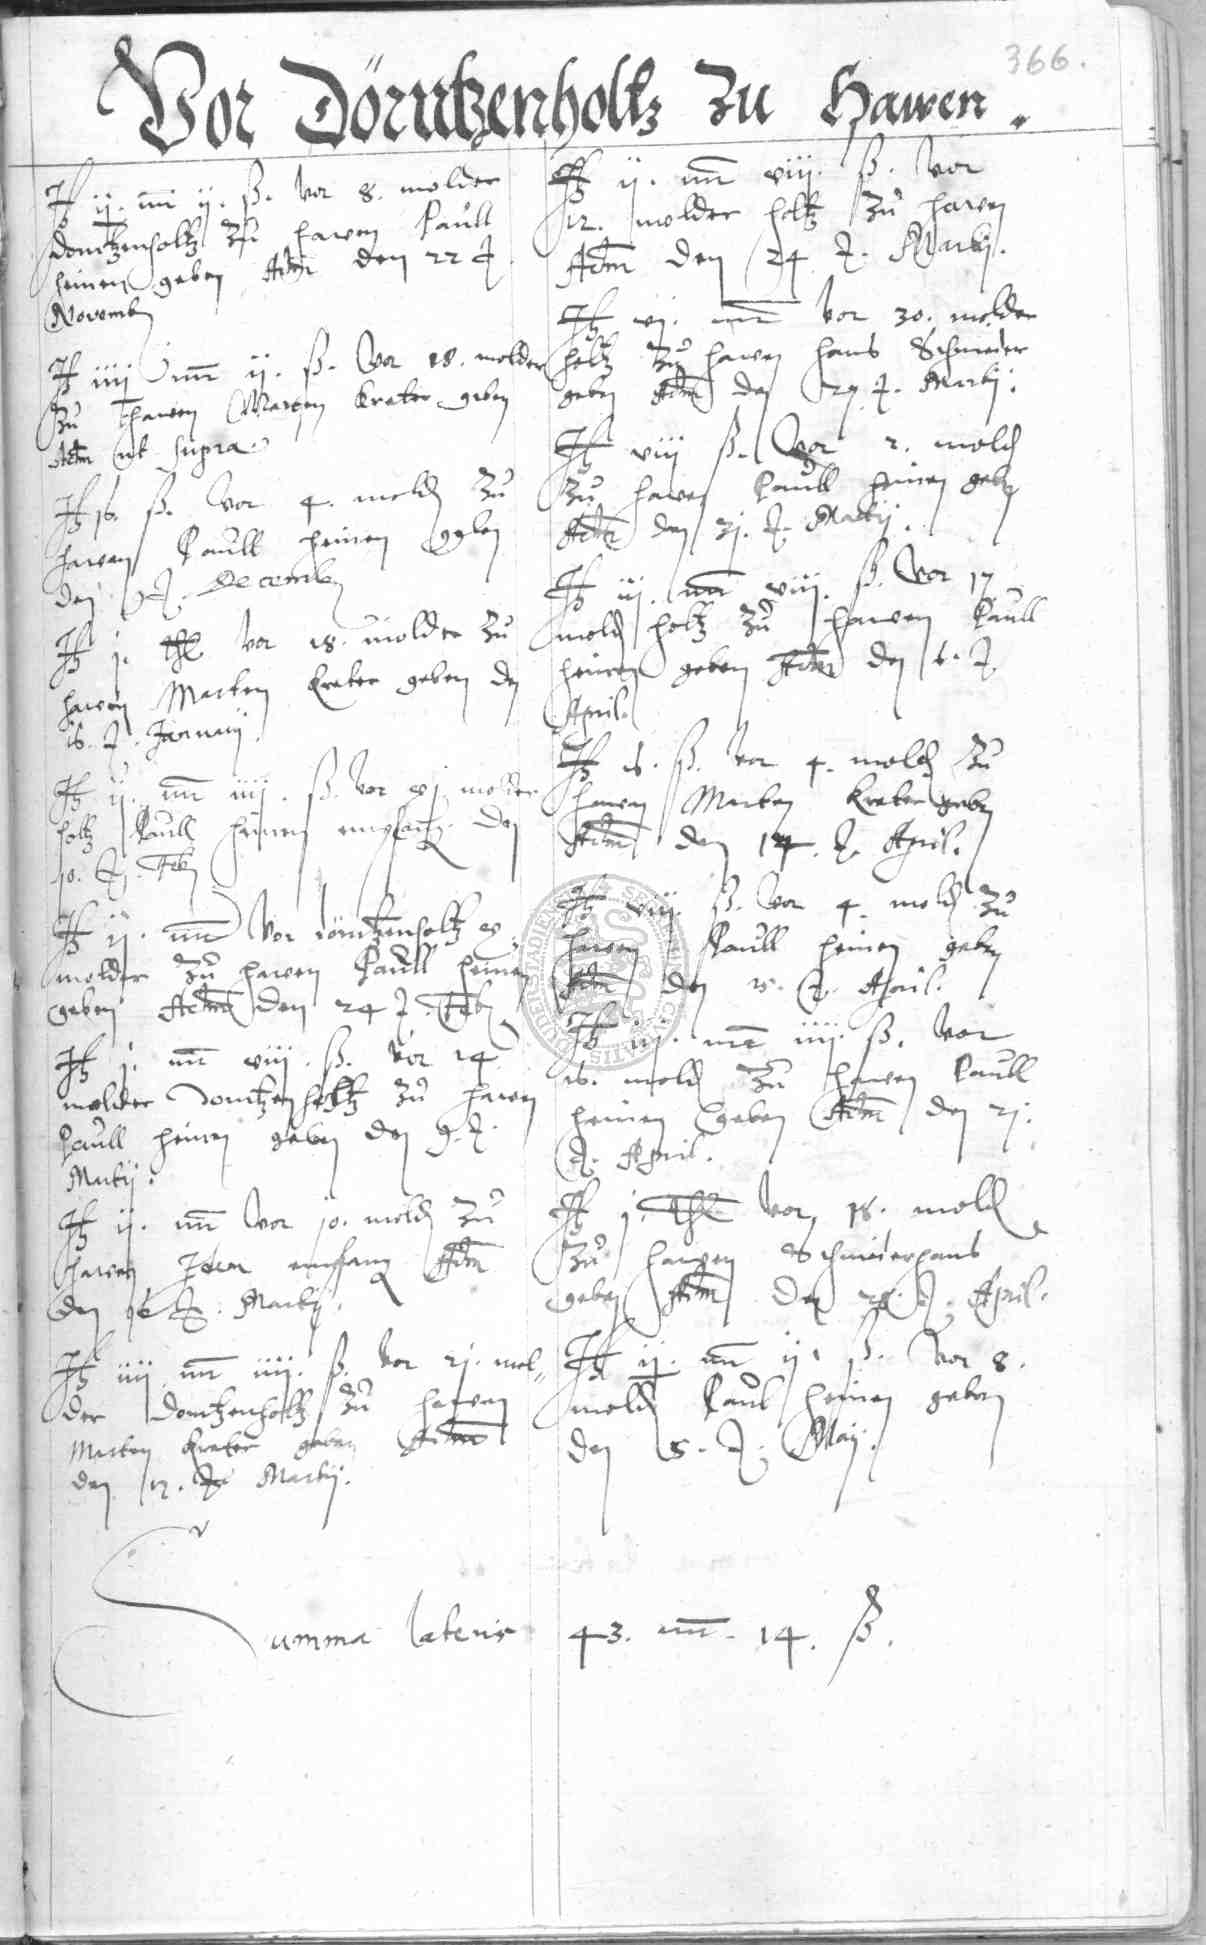 366.
Vor Dörntzenholtz Zu Hawen.
It ij. mr ij. ß. vor 8. molder
dorntzenholtz Zu hawen Paull
heinen geben Actum den 22 t.
Novemb
It iiij mr ij. ß. Vor 18. molder
Zu hawen Marten Kreter geben
Actum ut supra
It 16. ß. vor 4. mold Zu
hawen Paull heinen geben
den t. Decemb
It j. thl vor 18. molder Zu
hawen Marten Kreter geben den
16. t. Januarij.
It ij. mr iiij. ß. vor xj molder
holtz Paull heinen empfang den
10. t. Feb
It ij. mr vor dörntzenholtz
molder Zu hawen Paull heinen
geben Actum den 24 t. Feb
It j. mr viij. ß. vor 14
molder dorntzenholtz Zu hawen
Paull heinen geben den 9. t.
Martij.
It ij. mr vor 10. mold Zu
hawen Idem empfang Actum
den 16 t. Martij.
It iiij mr iiij. ß. vor 21. mol„
der dorntzenholtz Zu hawen
Marten Kreter geben Actum
den 17. t. Martij.
It ij. mr viij. ß. vor
12. molder holtz Zu hawen
Actum den 24 t. Martij.
It vj. mr vor 30. molder
holtz Zu hawen hans Schmeier
geben Actum den 29 t. Martij.
It viij ß. Vor 2. mold
Zu hawen Paull heinen geben
Actum den 31. t. Martij.
It iij. mr viij. ß. Vor 17
mold holtz Zu hawen Paull
heinen geben Actum den 6. t.
April.
It 16. ß. vor 4. mold Zu
hawen Marten Kreter geben
Actum den 14. t. April.
It viij. ß. vor 4. mold Zu
hawen Paull heinen geben
Actum den 15. t. April.
It iij. mr iiij. ß. vor
16. mold Zu hawen Paull
heinen geben Actum den 21.
t. April.
It j. Thl vor 18. mold
Zu hawen Schmeierhans
geben Actum den 28. t. April.
It ij. mr ij. ß. vor 8.
mold Paul heinen geben
den 5. t. Maij.
Summa lateris 43. mr. 14. ß.